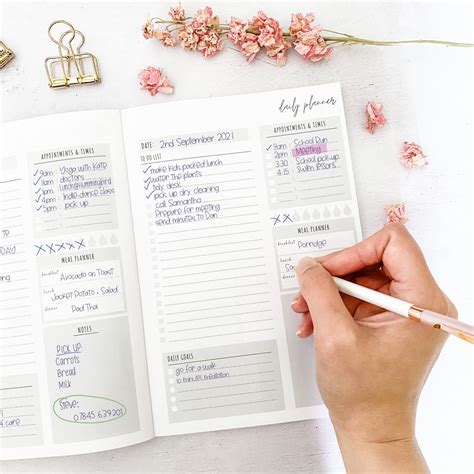 APPOINTMENTS & TIMES
9am Yoga with Kate
doctors
Indie dance class
pick up
XXXX
MEAL PLANNER
breakfast
Avocado on Toast
lunch
Jacket Potato + Salad
dinner
Pad Thai
NOTES
PICK UP:
Carrots
Bread
Milk
Steve:
07845 639201
care
daily planner
DATE: 2nd September 2021
TO DO LIST
make kids packed lunch
water the plants
tidy desk
pick up dry cleaning
call Samantha
Prepare for meeting
send minutes to Dan
DAILY GOALS
go for a walk
10 minutes meditation
APPOINTMENTS & TIMES
9am School Run
2pm Meeting
3.30 School pick up
4.15 Swim lessons
MEAL PLANNER
breakfast
Porridge
lunch